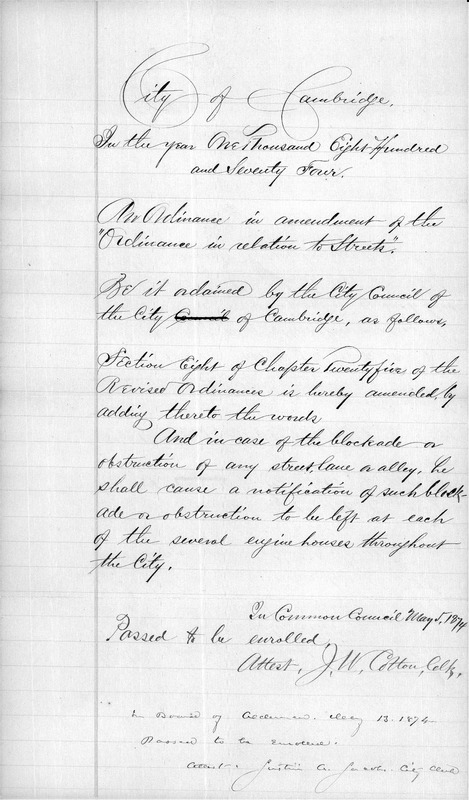 City of Cambridge.
In the year One Thousand Eight Hundred
and Seventy Four.
An Ordinance in amendment of the
"Ordinance in relation to Streets".
Be it ordained by the City Council of
the City Council of Cambridge, as follows,
Section Eight of Chapter Twenty five of the
Revised Ordinances is hereby amended, by
adding thereto the words
And in case of the blockade or
obstruction of any street, lane or alley, he
shall cause a notification of such block-
ade or obstruction to be left at each
of the several engine houses throughout
the City.
In Common Council May 5, 1874
Passed to be enrolled,
Attest, J. W. Cotton, Clk,
In Board of Aldermen. May 13. 1874
Passed to be enrolled.
Attest. Justin A. Jacobs. City Clerk